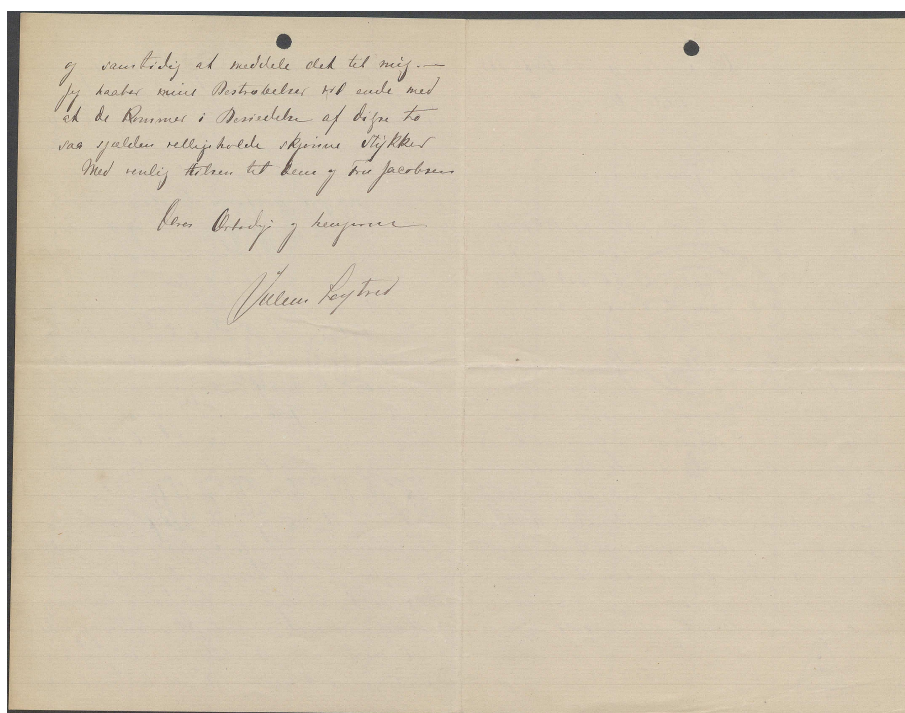 og samtidig at meddele det til mig. —
Jeg haaber mine Bestræbelser vil ende med
at de kommer i Besiddelse af disse to
saa sjælden velligeholdte skjønne Stykker
Med venlig Hilsen til Dem og Fru Jacobsen
Deres Ærbødige og hengivne
Julius Løytved